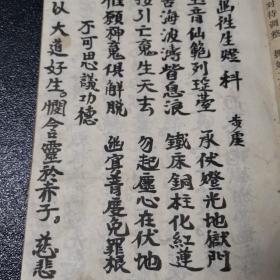 往生燈科
步虛
仙範列瑤 承伏燈光地獄門
苦海波濤皆息浪 鐵床銅柱化紅蓮
接引亡魂生天去 勿起塵心在伏地
惟願 魂俱解脫 普度免罪根
不可思議功德
以大道好生。憫含靈於赤子。慈悲